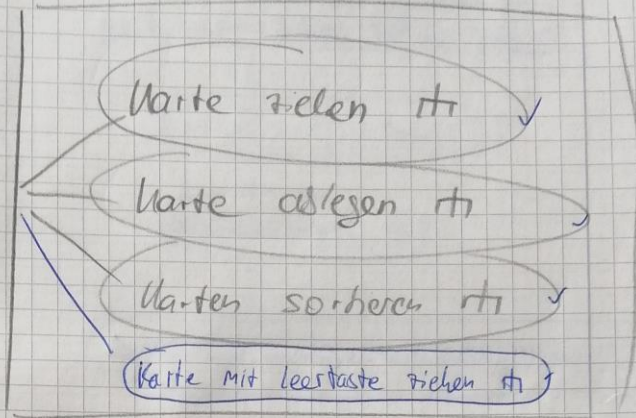 Karte ziehen
Karte ablegen
Karten sortieren
Karte mit leertaste ziehen